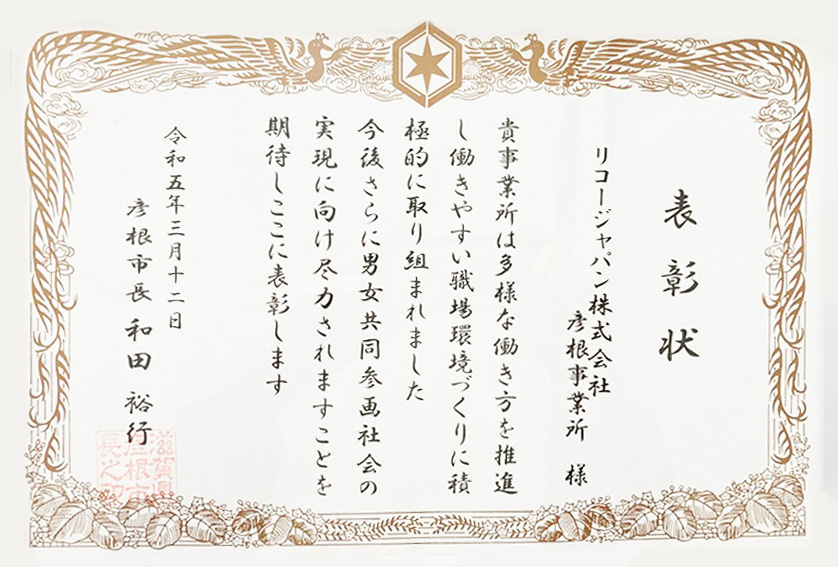 表彰状
リコージャパン株式会社
彦根事業所 様
貴事業所は多様な働き方を推進
し働きやすい職場環境づくりに積
極的に取り組まれました
今後さらに男女共同参画社会の
実現に向け尽力されますことを
期待しここに表彰します
令和五年三月十二日
彦根市長 和田 裕行
滋賀県
彦根市
長之印